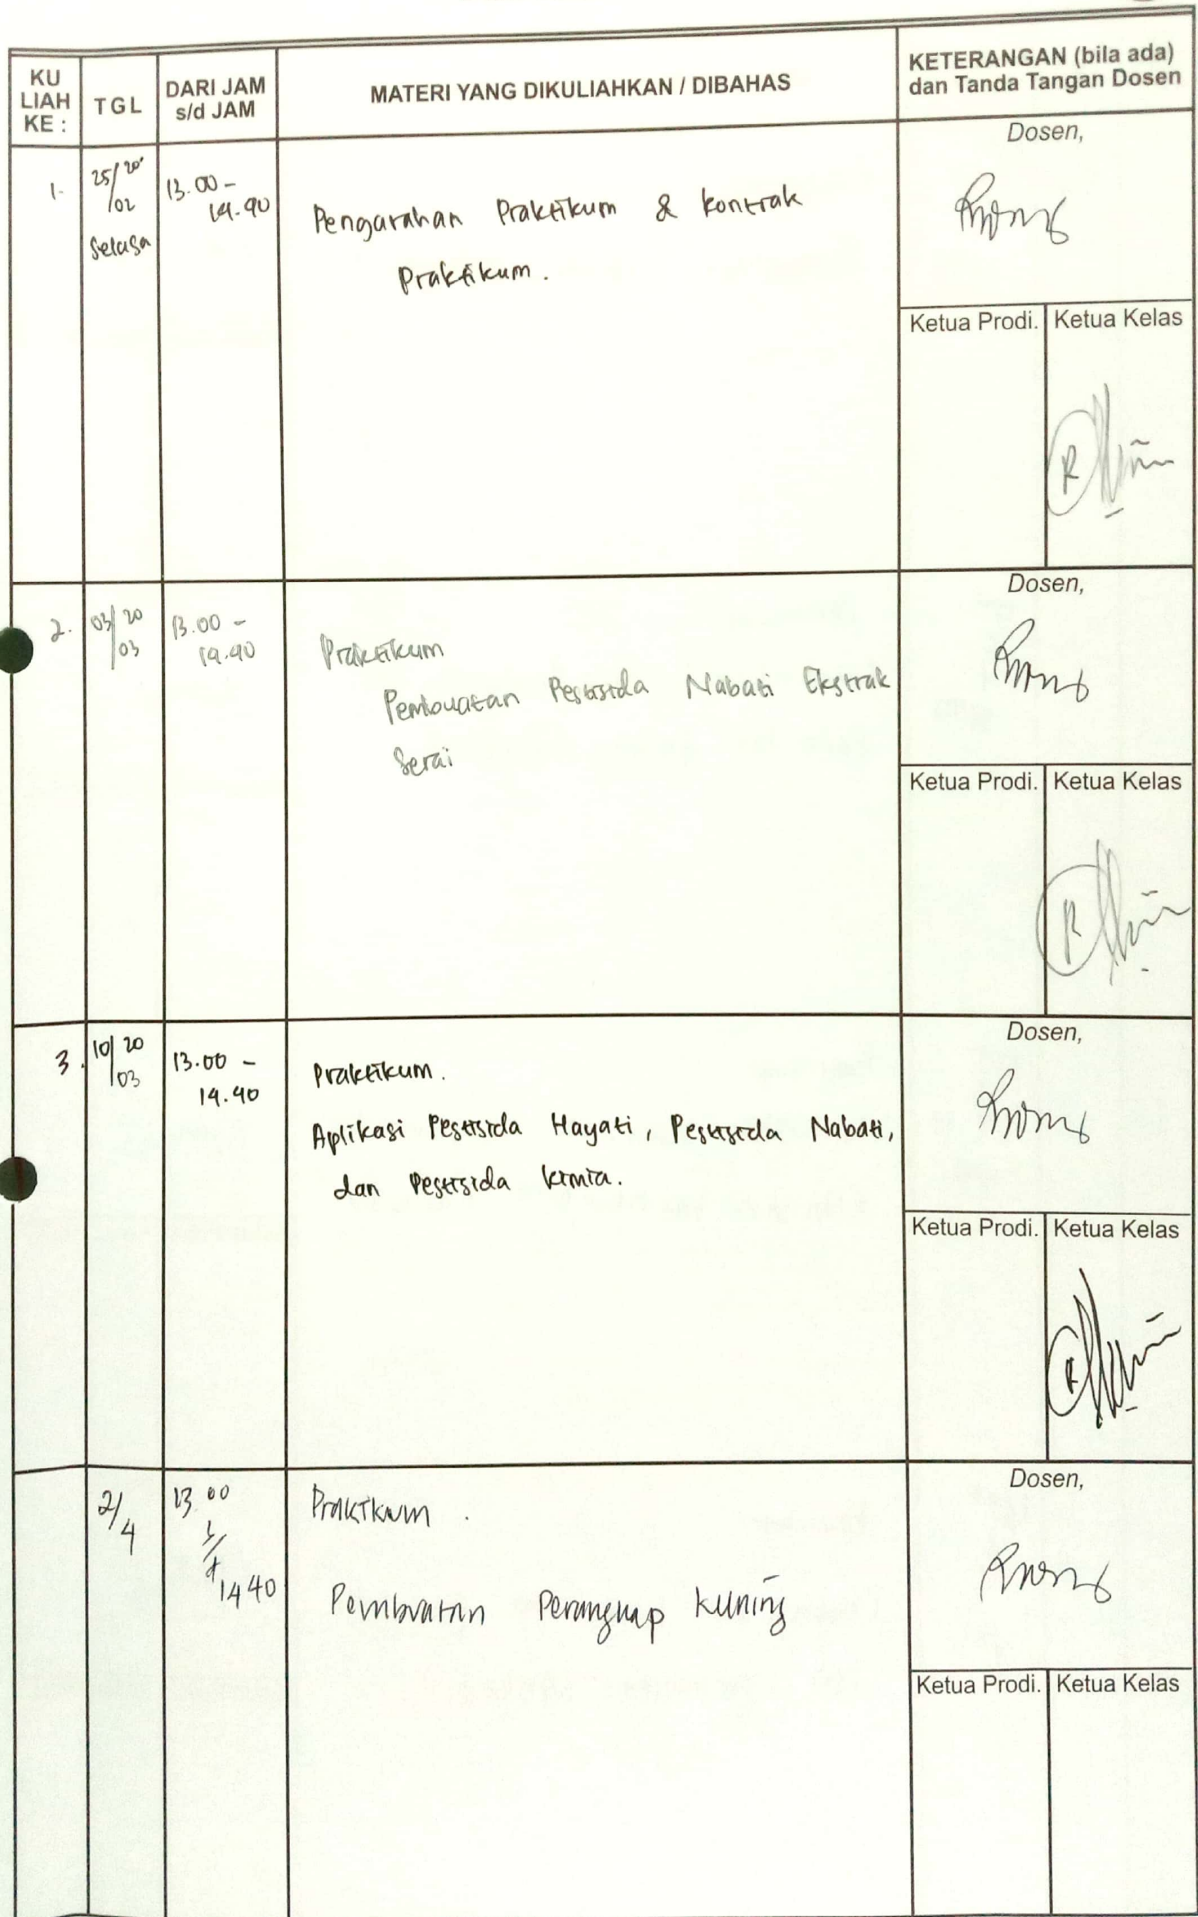 KU LIAH KE :
TGL
DARI JAM s/d JAM
MATERI YANG DIKULIAHKAN / DIBAHAS
KETERANGAN (bila ada) dan Tanda Tangan Dosen
1.
25/20
/02
Selasa
13.00 -
14.40
Pengarahan Praktikum & kontrak
Praktikum.
Dosen,
Ketua Prodi.
Ketua Kelas
2.
03/20
/03
13.00 -
14.40
Praktikum
Pembuatan Pestisida Nabati Ekstrak
Serai
Dosen,
Ketua Prodi.
Ketua Kelas
3.
10/20
/03
13.00 -
14.40
Praktikum.
Aplikasi Pestisida Hayati, Pestisida Nabati,
dan Pestisida kimia.
Dosen,
Ketua Prodi.
Ketua Kelas
2/4
13.00
s/d
1440
Praktikum.
Pembuatan Perangkap kuning
Dosen,
Ketua Prodi.
Ketua Kelas